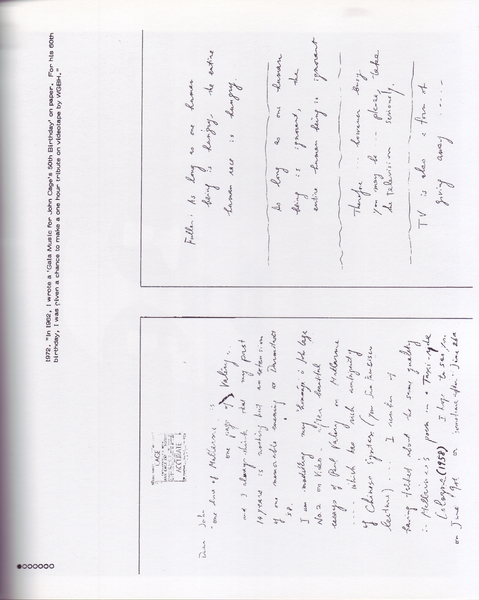 1972. "In 1962, I wrote a 'Gala Music for John Cage's 50th Birthday' on paper. For his 60th
birthday, I was given a chance to make a one hour tribute on videotape by WGBH."
Dear John
"one line of Mallarmé is
one page of Valéry"
and I always think that my past
14 years is nothing but an extension
of one memorable evening at Darmstadt
58.
I am modelling my "homage à John Cage
No 2 on Video" after beautiful
essays of Paul Valéry on Mallarmé
.... which has rich ambiguity
of Chinese syntax (you
lecture) .... I remember
being talked about the same quality
in Mallarmé's poem in a Taxi ride
Cologne (1958) I hope to see you
on June or sometime after June
CAGE
ACCURATE
Fuller: As long as one human
being is hungry, the entire
human race is hungry.
As long as one human
being is ignorant, the
entire human being is ignorant
Therefore ... however busy
you may be ... please, take
the television seriously.
TV is also a form of
giving away .....